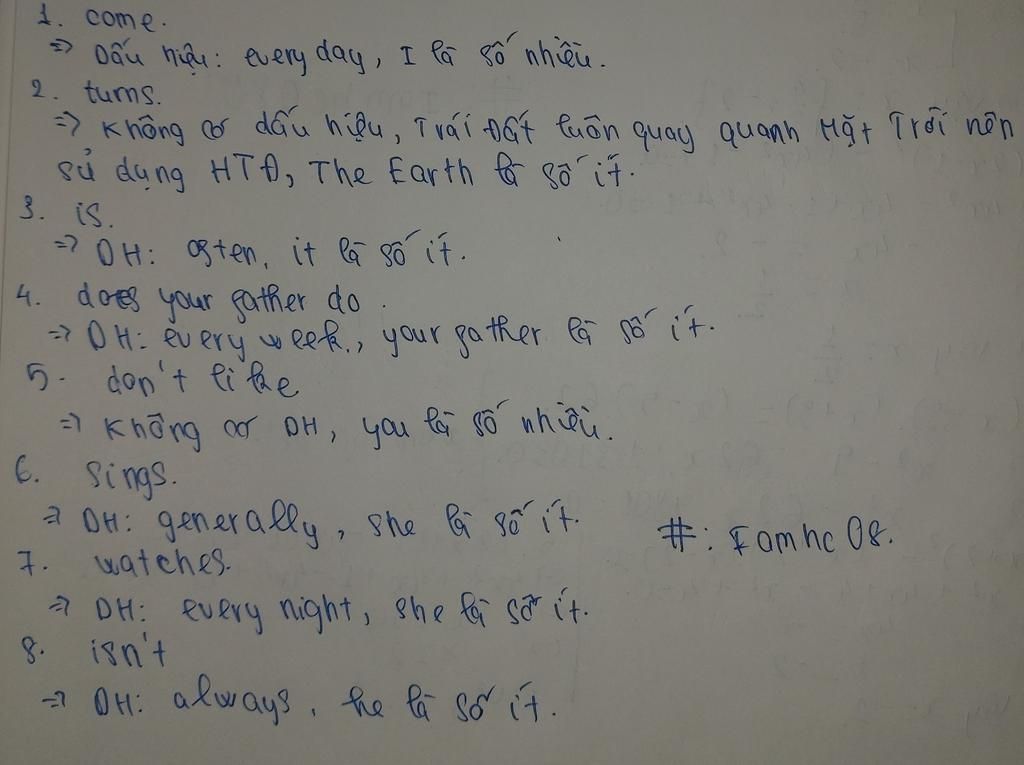 1. come.
=> Dấu hiệu: every day, I là số nhiều.
2. turns.
=> Không có dấu hiệu, Trái Đất luôn quay quanh Mặt Trời nên
sử dụng HTĐ, The Earth là số ít.
3. is.
=> DH: often, it là số ít.
4. does your father do.
=> DH: every week., your father là số ít.
5. don't like
=> Không có DH, you là số nhiều.
6. sings.
=> DH: generally, she là số ít.
#: Iamhc08.
7. watches.
=> DH: every night, she là số ít.
8. isn't
=> DH: always, he là số ít.